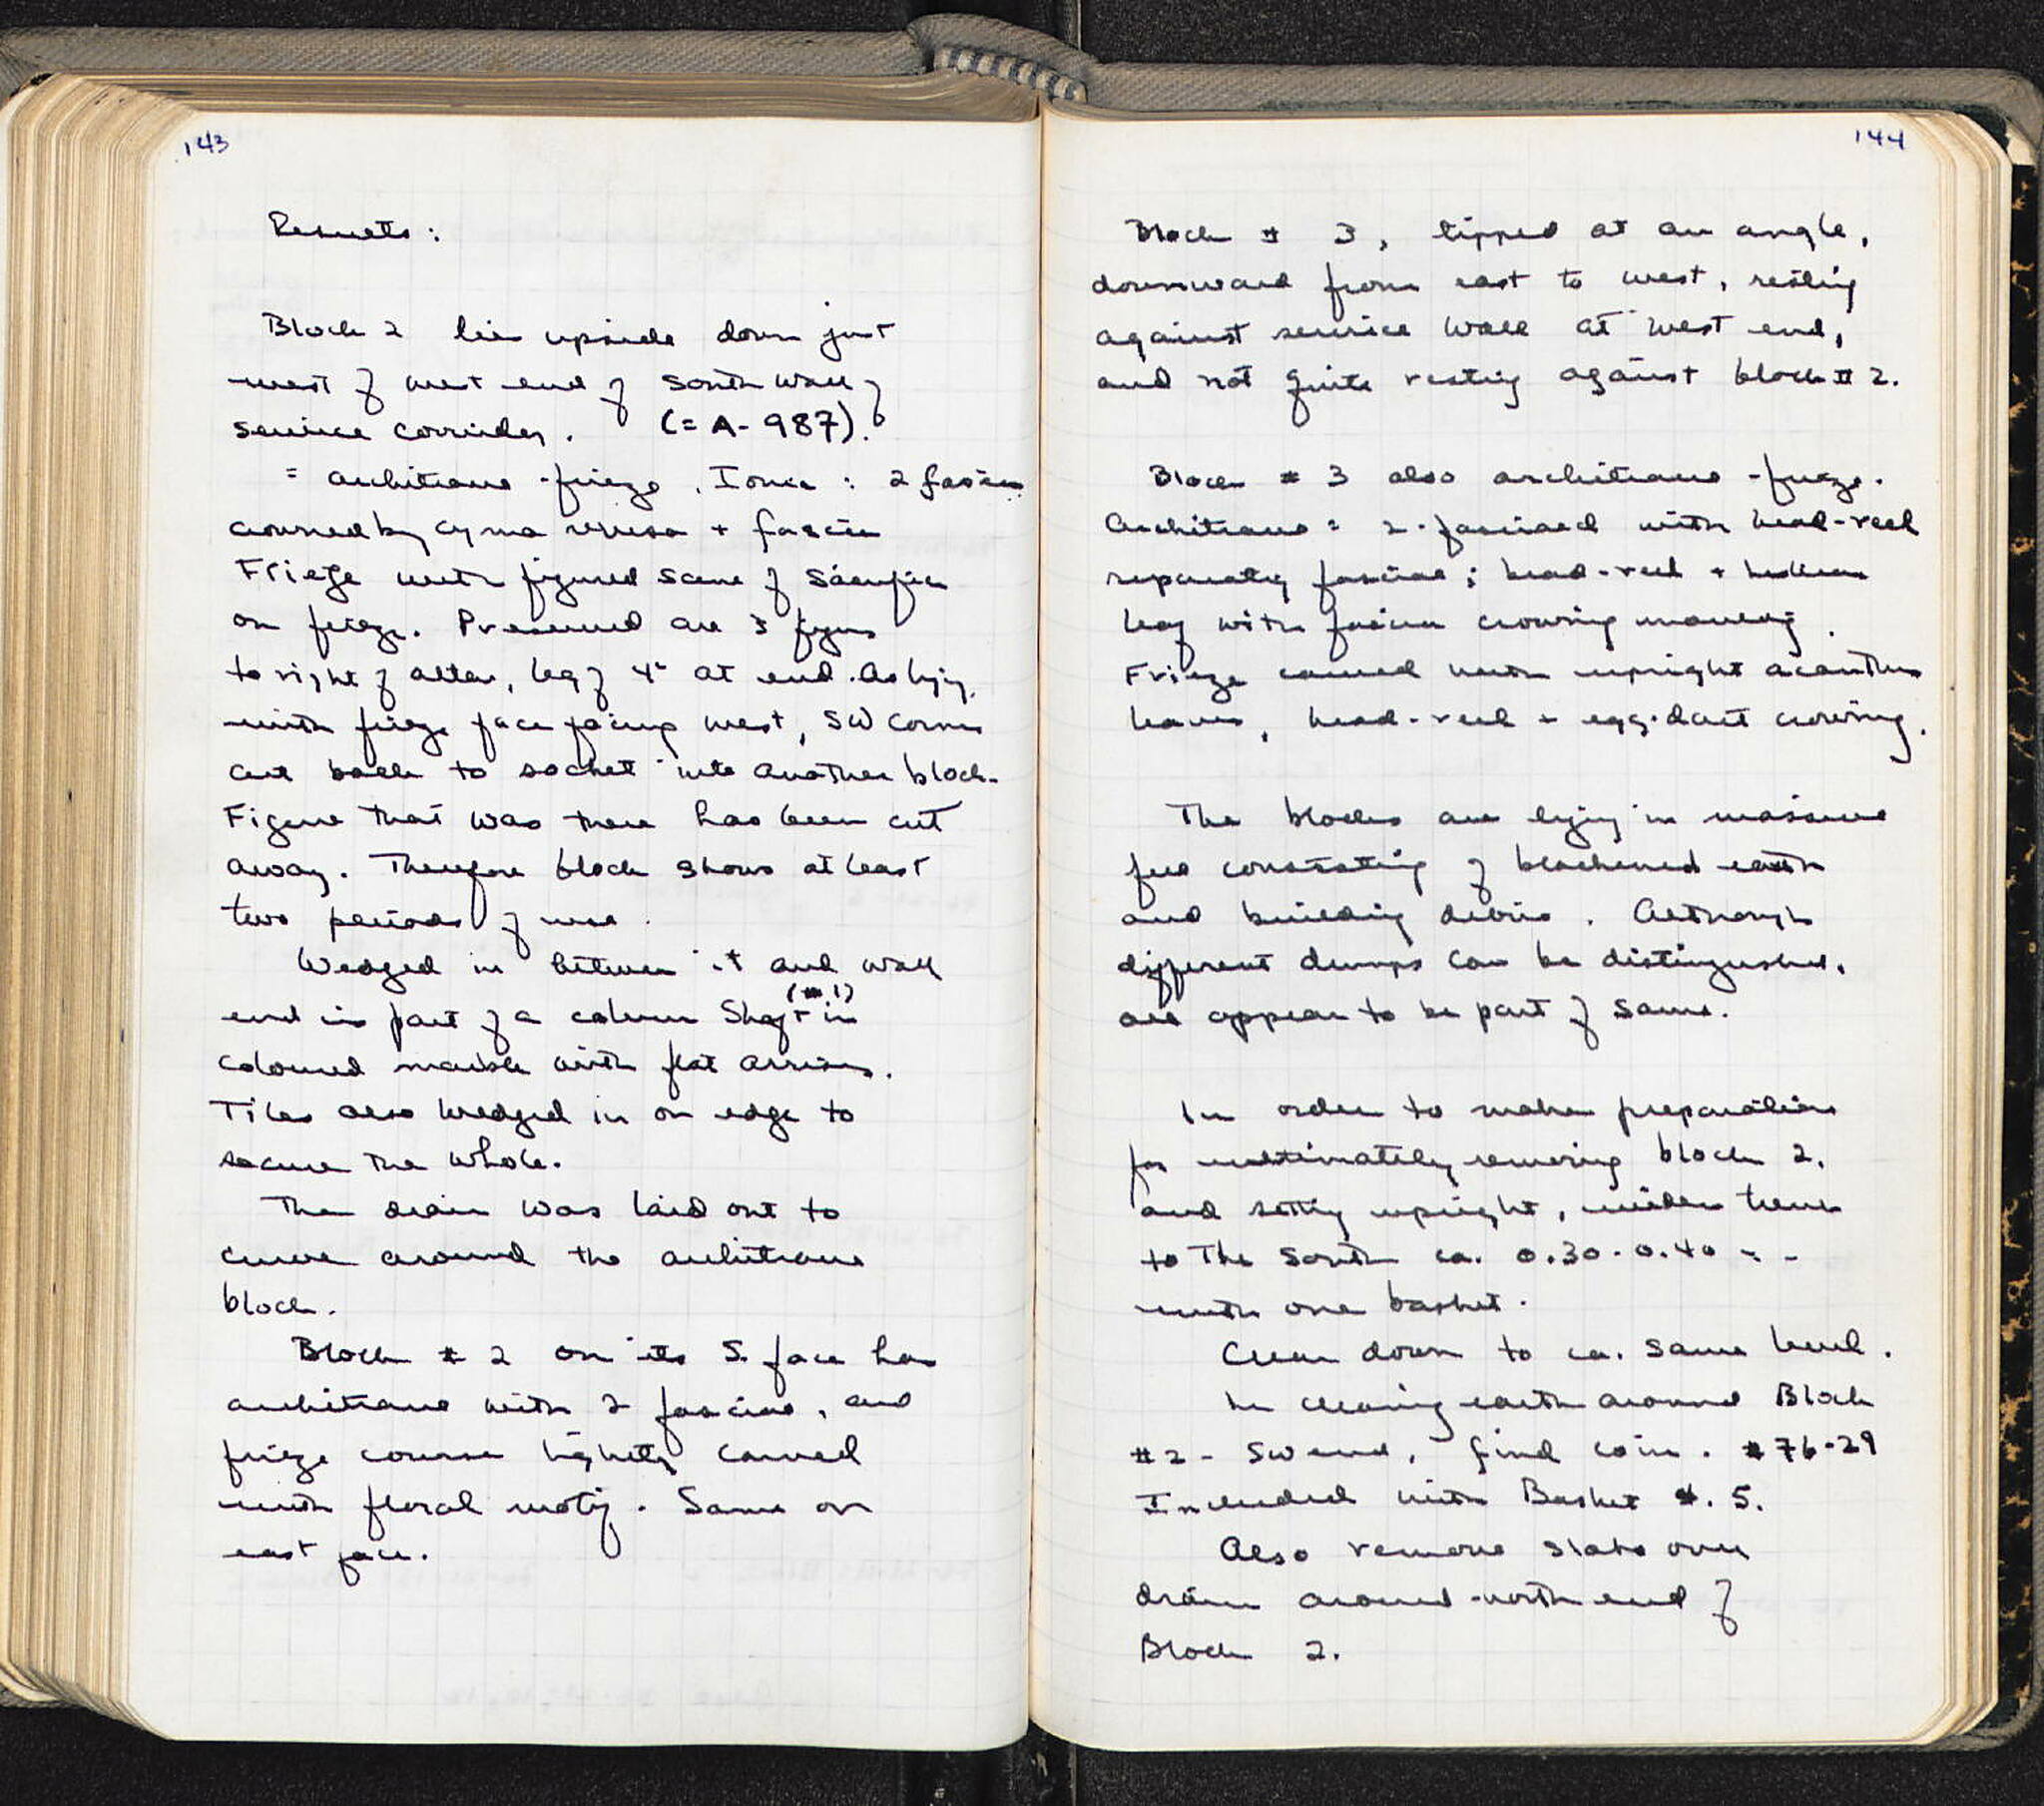 143
Results:
Block 2 lies upside down just
west of west end of South Wall of
service corridor. (= A-987).
= architrave-frieze, Ionic: 2 fasciae
crowned by cyma reversa + fascia
Frieze with figured scene of Sacrifice
on frieze. Preserved are 3 figures
to right of altar, leg of 4th at end. As lying,
with frieze face facing west, SW corner
cut back to socket into another block.
Figure that was there has been cut
away. Therefore block shows at least
two periods of use.
Wedged in between it and wall
end is part of a column Shaft (#1) in
coloured marble with flat arrises.
Tiles also wedged in on edge to
secure the whole.
The drain was laid out to
curve around the architrave
block.
Block # 2 on its S. face has
architrave with 2 fasciae, and
frieze course lightly carved
with floral motif. Same on
east face.
144
Block # 3, tipped at an angle,
downward from east to west, resting
against service wall at west end,
and not quite resting against block # 2.
Block # 3 also architrave-frieze.
Architrave = 2-fasciaed with bead-reel
separating fasciae; bead-reel +
leaf with fascia crowning moulding.
Frieze carved with upright acanthus
leaves, bead-reel + egg-dart crowning.
The blocks are lying in massive
fill consisting of blackened earth
and building debris. Although
different dumps can be distinguished,
all appear to be part of same.
In order to make preparations
for ultimately removing block 2,
and setting upright, widen trench
to The South ca. 0.30-0.40 - -
with one basket.
Clean down to ca. same level.
In cleaning earth around Block
#2 - SW end, find coin. #76-29
Included with Basket #. 5.
Also remove slabs over
drain around north end of
Block 2.